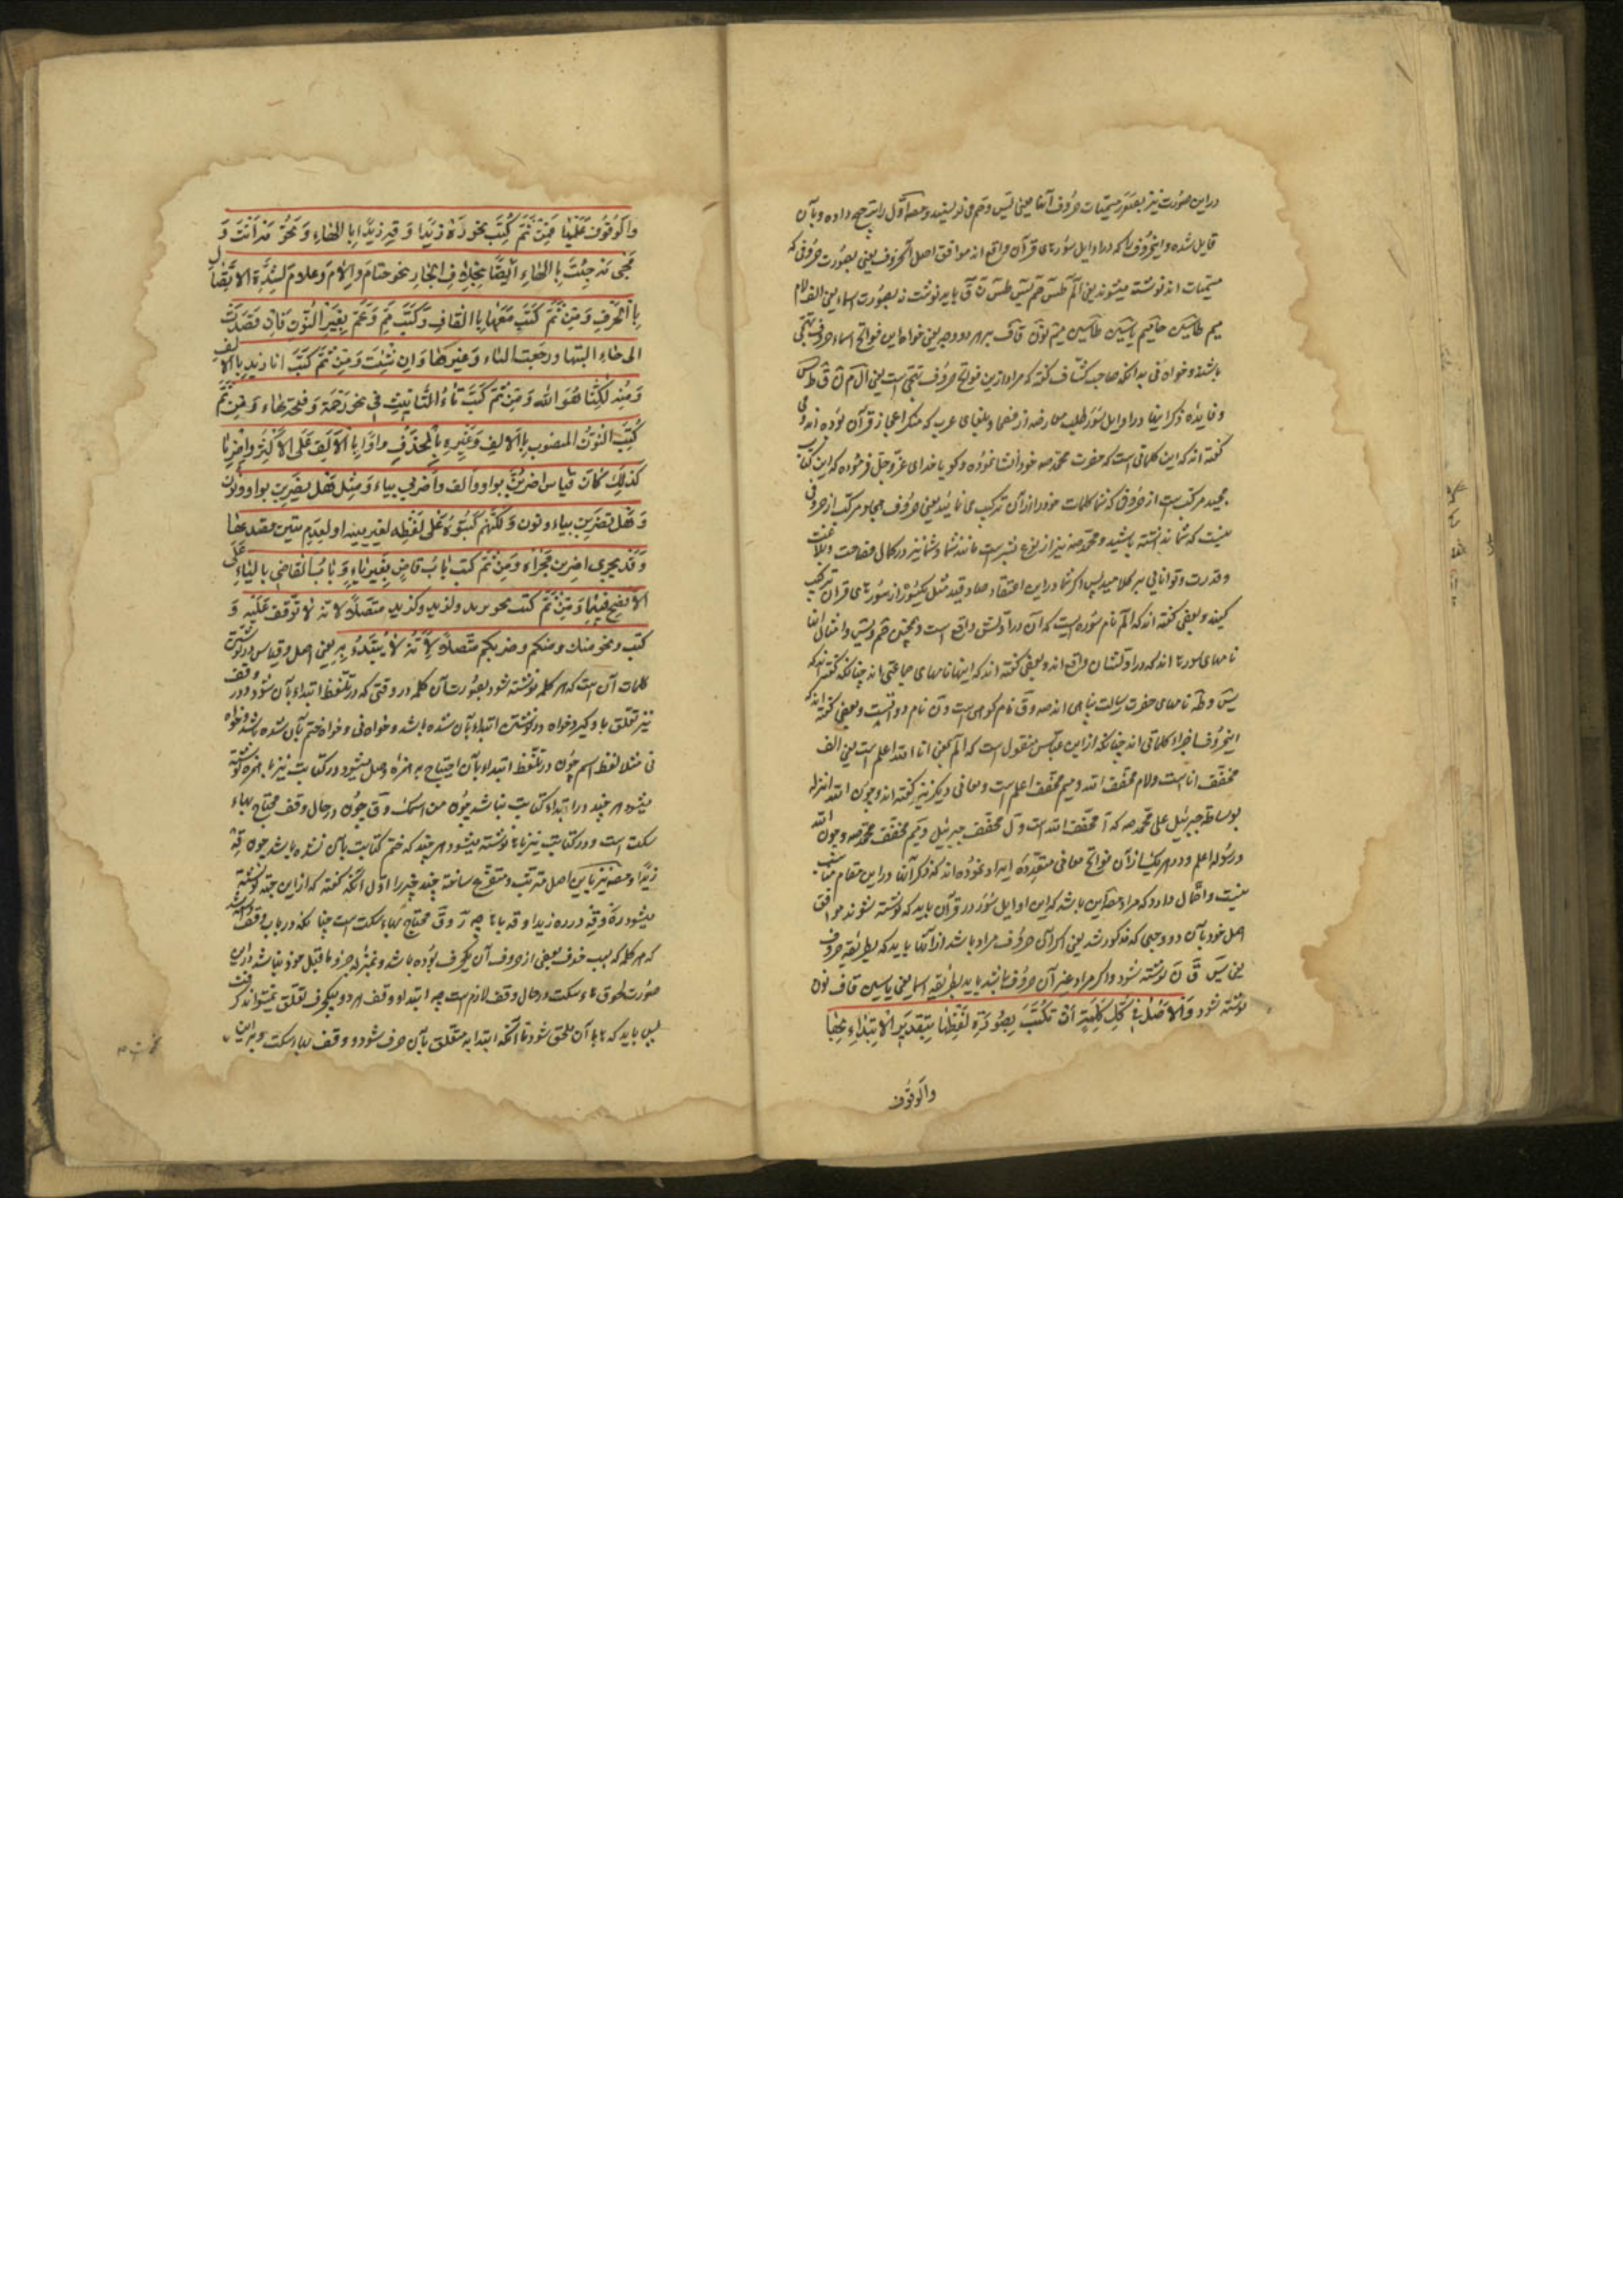 در این صورت نیز بصور مسمیات حروف آنها یعنی یس و حم می نویسند و مص اول را ترجیح داده و بآن
قایل شده و این حروف را که در اوایل سورهای قرآن واقع اند موافق اصل الحروف یعنی بصورت حروفی که
مسمیات اند نوشته میشوند یعنی الم طس حم یس طس ن ق باید نوشت نه بصورت اسماء یعنی الف لام
میم طاسین حامیم یاسین طاسین میم نون قاف بر هر دو وجه یعنی خواه این فواتح اسماء حروف تهجی
باشند و خواه نی بدانکه صاحب کشاف گفته که مراد ازین فواتح حروف تهجی است یعنی ال م ن ق ط س
و فایده ذکر اینها در اوایل سور طلب معارضه از فصحا و بلغای عرب که منکر اعجاز قرآن بوده اند و می
گفته اند که این کلماتی است که حضرت محمد صه خود انشا نموده و گویا خدای عز و جل فرموده که این کتاب
مجید مرکبست از حروفی که شما کلمات خود را از آن ترکیب می نمائید یعنی حروف هجا و مرکب از حروفی
نیست که شما ندانسته باشید و محمد صه نیز از نوع بشر است مانند شما و شما نیز در کمال فصاحت و بلاغت
و قدرت و توانایی بر کلامید پس اگر شما در این اعتقاد صادقید مثل یکسوره از سورهای قرآن ترکیب
کنید و بعضی گفته اند که الم نام سوره ایست که آن در اولش واقع است و همچنین حم و یس و امثال آنها
نامهای سورها اند که در اولشان واقع اند و بعضی گفته اند که اینها نامهای جماعتی اند چنانکه گفته اند که
یس و طه نامهای حضرت رسالت پناهی اند صه و ق نام کوهی است و ن نام دواتیست و بعضی گفته اند که
این حروف اجزاء کلماتی اند چنانکه از ابن عباس منقول است که الم بمعنی انا الله اعلم است یعنی الف
مخفف انا است و لام مخفف الله و میم مخفف اعلم است و معانی دیگر نیز گفته اند و چون الله انزله
بوساطة جبرئیل علی محمد صه که آ مخفف الله است و ل مخفف جبرئیل و م مخفف محمد صه و چون الله
و رسوله اعلم و در هر یک از آن فواتح معانی متعدده ایراد نموده اند که ذکر آنها در این مقام مناسب
نیست و احتمال دارد که مراد مص این باشد که این اوایل سور در قرآن باید که نوشته شوند موافق
اصل خود بآن دو وجهی که مذکور شد یعنی اگر آن حروف مراد باشد از آنها باید که بطریقه حروف
یعنی یس ق ن نوشته شود و اگر مراد غیر آن حروف باشند باید بطریقه اسما یعنی یاسین قاف نون
نوشته شود وَالاَصْلُ فِی کُلِّ کَلِمَةٍ اَنْ تُکْتَبَ بِصُورَةِ لَفْظِهَا بِتَقْدِیرِ الاِبْتِدَاءِ بِهَا
والوقوف
والوقوف علیها فمن ثم کتب نحو ره زیدا وقه زیدا بالهاء ونحو مه انت و
مجیء مه جئت بالهاء ایضا بخلاف الجار نحو حتام والام وعلام لشدة الاتصال
بالحرف ومن ثم کتبت معها بالفات وکتب مم وعم بغیر النون فان قصدت
الی هاء البتها ورجعت الیاء وغیرها وان شئت ومن ثم کتب انا زید بالالف
ومنه لکنا هو الله ومن ثم کتب تاء التأنیث فی نحو رحمة وقمحة هاء ومن ثم
کتب النون المنصوب بالالف وغیره بالحذف واذا بالالف علی الاکثر واضربا
کذلک وکان قیاس اضربن بواو والف واضربی بیاء ومثل هل تضربن بواو ونون
وهل تضربن بیاء ونون ولکنهم کتبوه علی لفظه لعسر تبینه او لعدم تبین قصدها
وقد یجری اضربن مجراه ومن ثم کتب باب قاض بغیر یاء وباب القاضی بالیاء علی
الافصح فیهما ومن ثم کتب نحو بزید ولزید وکزید متصلا لانه لا توقف علیه و
کتب ونحو منک ومنکم وضربکم متصلا لانه لا یبتدء به یعنی اصل و قیاس در نوشتن
کلمات آن است که هر کلمه نوشته شود بصورت آن کلمه در وقتی که در تلفظ ابتداء بآن شود و وقف
نیز تعلق باو گیرد خواه در نوشتن ابتداء بآن شده باشد و خواه نی و خواه ختم بآن شده باشد و خواه
نی مثلا لفظ اسم چون در تلفظ ابتداء بآن احتیاج به همزه وصل میشود در کتابت نیز با همزه نوشته
میشود هر چند در ابتداء کتابت نباشد چون من اسمک و ق چون در حال وقف محتاج بهاء
سکت است و در کتابت نیز با ها نوشته میشود هر چند که ختم کتابت بآن نشده باشد چون قه
زیدا و مص نیز باین اصل مترتب و متفرع ساخته چند چیز را اول آنکه گفته که از این جهة نوشته
میشود ره و قه در ره زیدا و قه با ها چه ر و ق محتاج بهاء سکت است چنانکه در باب وقف دانسته شد
که هر کلمه که بسبب حذف بعضی از حروف آن یکحرف بوده باشد و بمنزله جزو ماقبل خود نباشد در این
صورت لحوق هاء سکت در حال وقف لازم است چه ابتدا و وقف هر دو بیکحرف تعلق نمیتواند گرفت
پس باید که ها بآن ملحق شود تا آنکه ابتدا به متعلق بآن حرف شود و وقف بهاء سکت و بر این